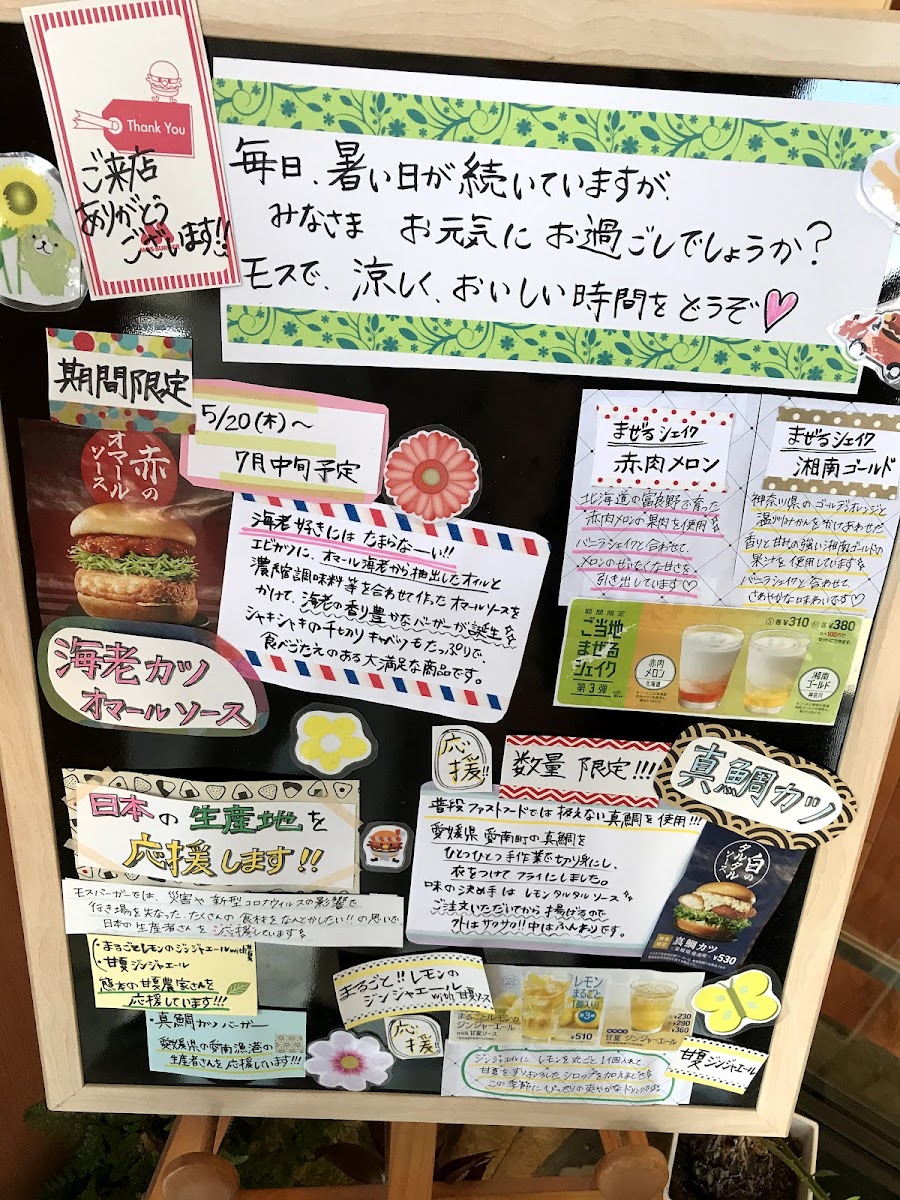 Thank You
ご来店
ありがとう
ございます!!
MOS BURGER
毎日、暑い日が続いていますが、
みなさま お元気にお過ごしでしょうか?
モスで、涼しく、おいしい時間をどうぞ♡
期間限定
5/20(木)～
7月中旬予定
赤の
オマール
ソース
海老カツ
オマールソース
海老好きにはたまらなーい!!
エビカツに、オマール海老から抽出したオイルと
濃縮調味料等を合わせて作ったオマールソースを
かけて、海老の香り豊かなバーガーが誕生
シャキシャキの千切りキャベツもたっぷりで、
食べごたえのある大満足な商品です。
まぜるシェイク
赤肉メロン
北海道の富良野で育った
赤肉メロンの果肉を使用
バニラシェイクと合わせて、
メロンのぜいたくな甘さを
引き出しています♡
まぜるシェイク
湘南ゴールド
神奈川県のゴールデンオレンジと
温州みかんをかけあわせた
香りと甘みの強い湘南ゴールドの
果汁を使用しています
バニラシェイクと合わせて
さわやかな味わいです♡
期間限定
ご当地
まぜる
シェイク
第3弾
赤肉
メロン
北海道
湘南
ゴールド
神奈川
S 各¥310 M 各¥380
応
援!!
数量 限定!!!
真鯛カツ
普段ファストフードでは扱えない真鯛を使用!!!
愛媛県愛南町の真鯛を
ひとつひとつ手作業で切り身にし、
衣をつけてフライにしました。
味の決め手はレモンタルタルソース
ご注文いただいてから揚げるので
外はサクサク!!中はふんわりです。
白の
タルタル
ソース
真鯛カツ
¥530
日本の生産地を
応援します!!
モスバーガーでは、災害や新型コロナウイルスの影響で
行き場を失なった、たくさんの食材をなんとかしたい!!の思いで、
日本の生産者さんを応援しています
・まるごとレモンのジンジャエールwith甘夏
・甘夏ジンジャエール
熊本の甘夏農家さんを
応援しています!!!
・真鯛カツバーガー
愛媛県の愛南漁港の
生産者さんを応援しています!!!
まるごと!!レモンの
ジンジャエール
with甘夏ソース
応
援!!
レモン
まるごと
1個入り!
まるごとレモンの
ジンジャーエール
with 甘夏ソース
¥510
甘夏 ジンジャーエール
¥230
¥290
¥360
甘夏ジンジャエール
ジンジャエールに、レモンを丸ごと1個入れて
甘夏をすりおろしたシロップを加えました
この季節にぴったりの爽やかなドリンクです